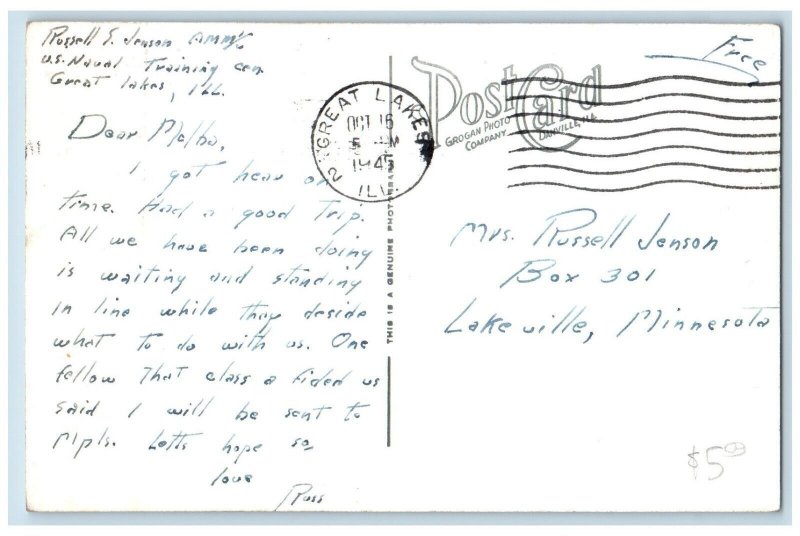 Russell E. Jenson AMM3/c
U.S. Naval Training Cen.
Great Lakes, Ill.
Dear Melba,
I got hear on
time. Had a good Trip.
All we have been doing
is waiting and standing
in line while they deside
what to do with us. One
fellow that class a fided us
said I will be sent to
Mpls. Letts hope so
love
Russ
GREAT LAKES
OCT 16
5 PM
1945
ILL.
THIS IS A GENUINE PHOTOGRAPH
Post Card
GROGAN PHOTO
COMPANY
DANVILLE, ILL.
Free
Mrs. Russell Jenson
Box 301
Lakeville, Minnesota
$500